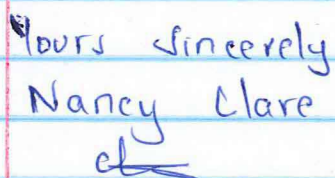 Yours sincerely
Nancy Clare